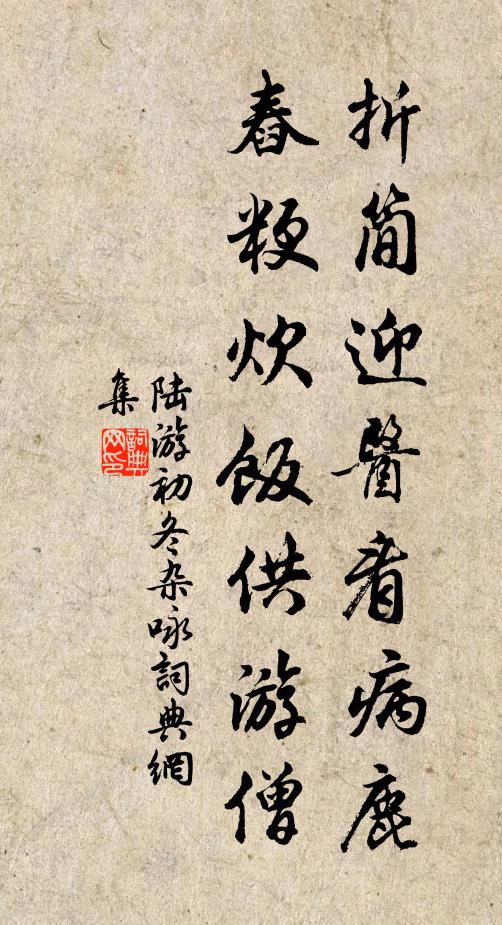 折简迎醫看病鹿
舂粳炊飯供游僧
陆游初冬杂咏詞典網
集
詞典
网印